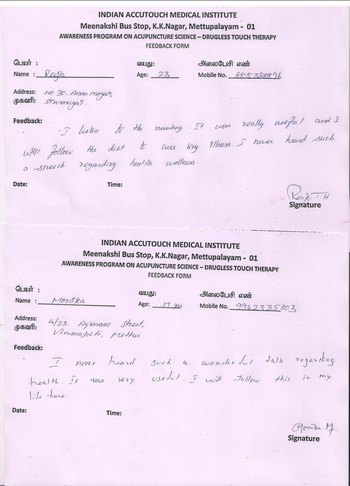 INDIAN ACCUTOUCH MEDICAL INSTITUTE
Meenakshi Bus Stop, K.K.Nagar, Mettupalayam - 01
AWARENESS PROGRAM ON ACUPUNCTURE SCIENCE – DRUGLESS TOUCH THERAPY
FEEDBACK FORM
பெயர் : வயது: அலைபேசி எண்
Name : Age: 23 Mobile No.
Address: no 30, Anna nagar,
முகவரி:
Feedback:
I listen to the meeting. It was really useful and I
will follow the diet to cure my illness. I never heard such
a speech regarding health wellness.
Date: Time:
Signature
INDIAN ACCUTOUCH MEDICAL INSTITUTE
Meenakshi Bus Stop, K.K.Nagar, Mettupalayam - 01
AWARENESS PROGRAM ON ACUPUNCTURE SCIENCE – DRUGLESS TOUCH THERAPY
FEEDBACK FORM
பெயர் : வயது: அலைபேசி எண்
Name : Monika Age: 19 Mobile No. 9962335803
Address: 4/23, street,
முகவரி:
Feedback:
I never heard such a wonderful talk regarding
health. It was very useful. I will follow this in my
life time.
Date: Time:
Monika M.
Signature